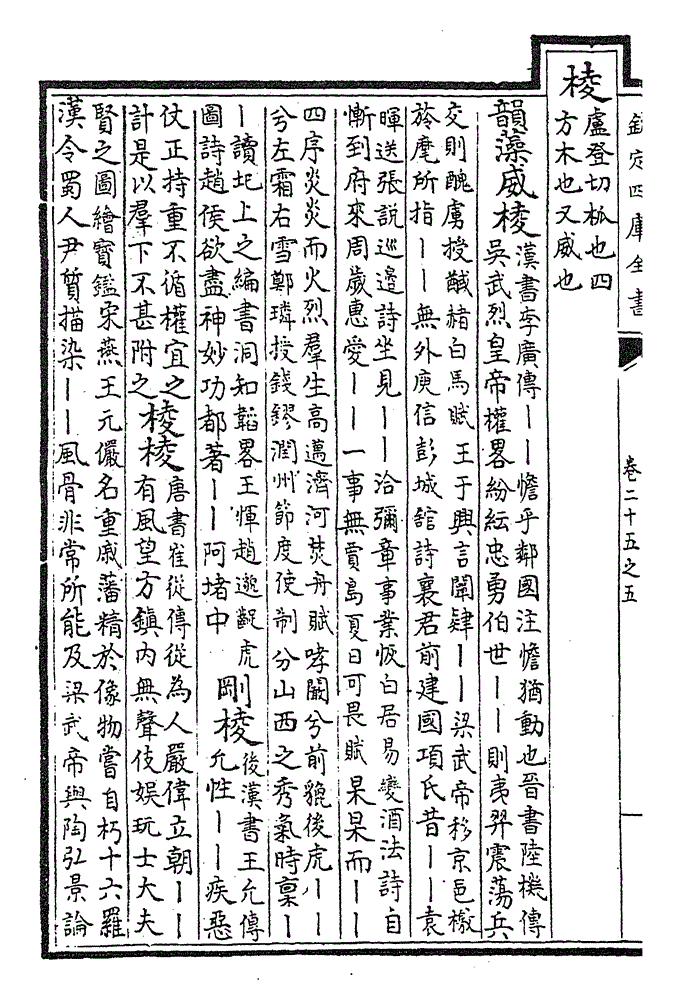 欽定四庫全書
卷二十五之五
棱
盧登切柧也四
方木也又威也
韻藻威棱
漢書李廣傳——憺乎鄰國注憺猶動也晉書陸機傳
吳武烈皇帝權畧紛紜忠勇伯世——則夷羿震蕩兵
交則醜虜授馘赭白馬賦王于興言闡肆——梁武帝移京邑檄
於麾所指——無外庾信彭城館詩襄君前建國項氏昔——袁
暉送張説巡邊詩坐見——洽彌章事業恢白居易變酒法詩自
慚到府來周歲惠愛——一事無賈島夏日可畏賦杲杲而——
四序炎炎而火烈羣生高邁濟河焚舟賦哮闞兮前貔後虎——
兮左霜右雪鄭璘授錢鏐潤州節度使制分山西之秀氣時稟—
—讀圯上之編書洞知韜畧王惲趙邈齪虎
圖詩趙侯欲盡神妙功都著——阿堵中
剛棱
後漢書王允傳
允性——疾惡
仗正持重不循權宜之
計是以羣下不甚附之
棱棱
唐書崔從傳從為人嚴偉立朝——
有風望方鎮内無聲伎娱玩士大夫
賢之圖繪寶鑑宋燕王元儼名重戚藩精於像物嘗自朽十六羅
漢令蜀人尹質描染——風骨非常所能及梁武帝與陶弘景論